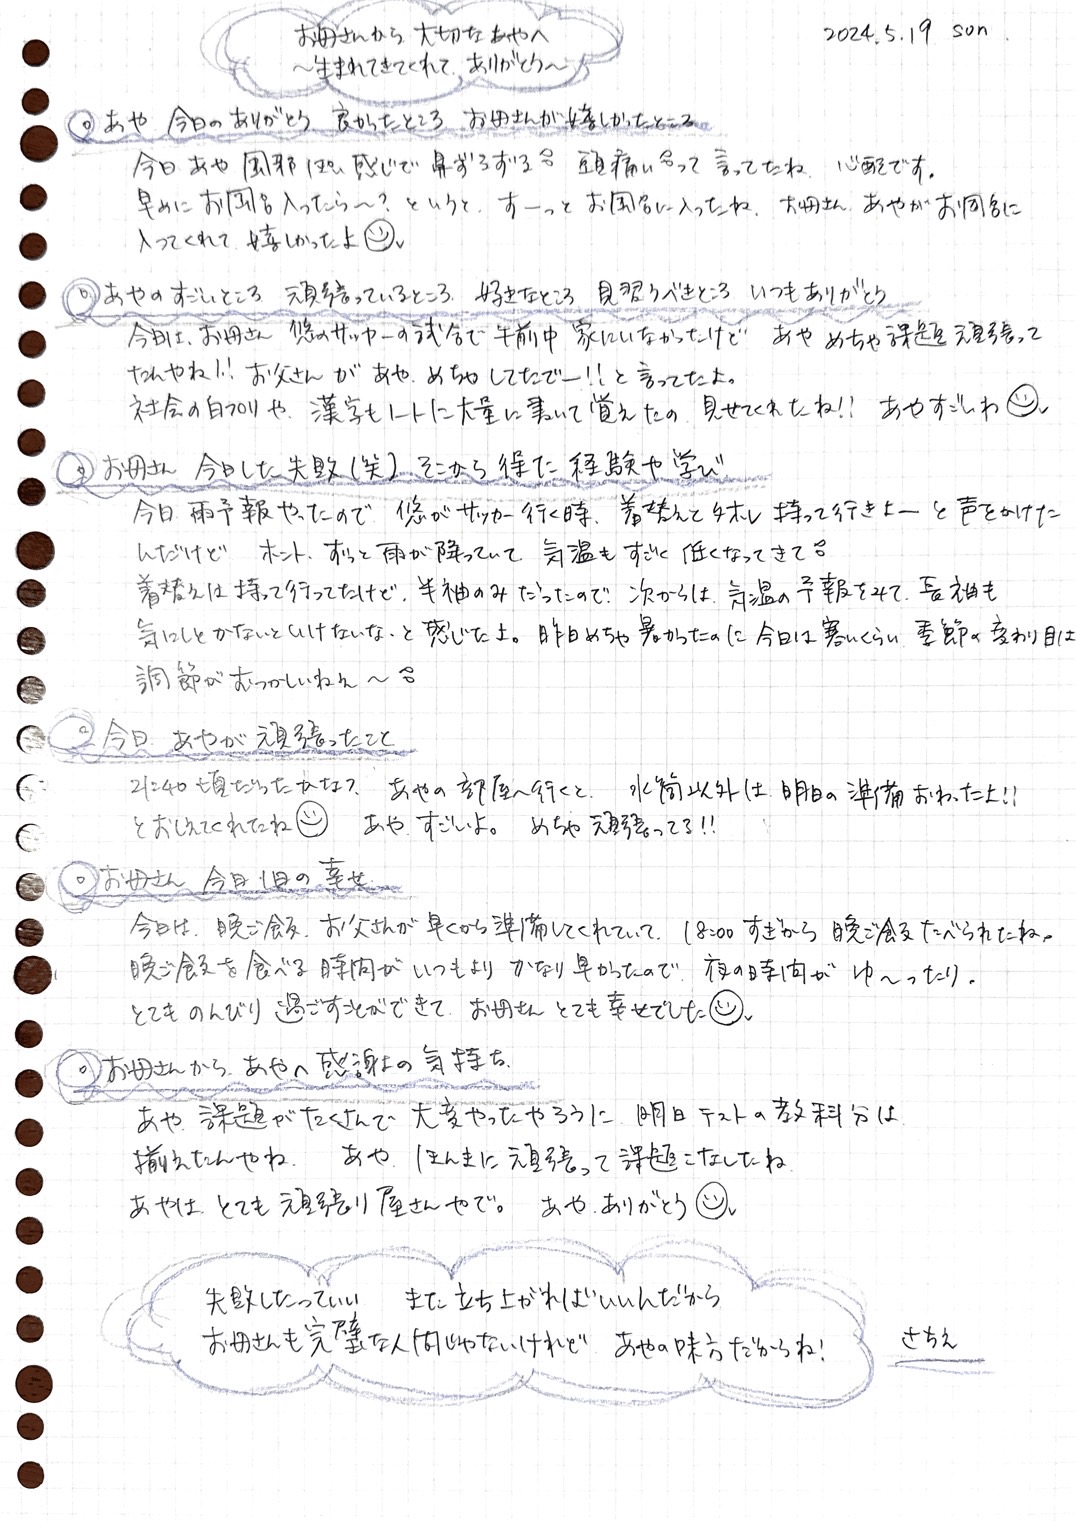 お母さんから 大切な あやへ
2024.5.19 sun
〜生まれてきてくれて ありがとう〜
あや 今日のありがとう 良かったところ お母さんが嬉しかったところ
今日 あや 風邪 ぽい 感じで 鼻ずるずる 頭痛いって 言ってたね 心配です。
早めに お風呂入ったら〜? というと、すーっと お風呂に入ったね、お母さん あやが お風呂に
入ってくれて 嬉しかったよ
あやのすごいところ 頑張っているところ 好きなところ 見習うべきところ いつもありがとう
今日は、お母さん 悠のサッカーの試合で 午前中 家にいなかったけど あや めちゃ 課題 頑張って
たんやね!! お父さんが あや めちゃしてたでー!! と 言ってたよ。
社会の白プリや、漢字もノートに大量に書いて覚えたの 見せてくれたね!! あやすごいわ
お母さん 今日した失敗(笑) そこから 得た 経験や学び
今日 雨予報やったので 悠がサッカー行く時、着替えとタオル 持って行きよー と声をかけた
んだけど ホント、ずっと 雨が降っていて 気温も すごく 低くなってきて
着替えは 持って行ってたけど、半袖のみ だったので 次からは 気温の予報をみて、長袖も
気にしとかないといけないな、と 感じたよ。昨日めちゃ暑かったのに 今日は 寒いくらい 季節の変わり目は
調節がむつかしいねぇ〜
今日 あやが 頑張ったこと
21:40 頃だったかな? あやの 部屋へ行くと、水筒以外は 明日の準備 おわったよ!!
とおしえてくれたね あや すごいよ。 めちゃ 頑張ってる!!
お母さん 今日1日の 幸せ
今日は、晩ご飯、お父さんが 早くから準備してくれていて、18:00 すぎから 晩ご飯 たべられたね。
晩ご飯を食べる時間が いつもより かなり早かったので、夜の時間が ゆ〜ったり。
とても のんびり 過ごすことができて、お母さん とても 幸せでした
お母さんから あやへ 感謝の気持ち
あや 課題がたくさんで 大変やったやろうに 明日 テストの教科分は
揃えたんやね、 あや、ほんまに 頑張って 課題こなしたね
あやは とても 頑張り屋さんやで。 あや ありがとう
失敗したっていい また 立ち上がればいいんだから
お母さんも 完璧な人間じゃないけれど あやの味方だからね!
さちえ